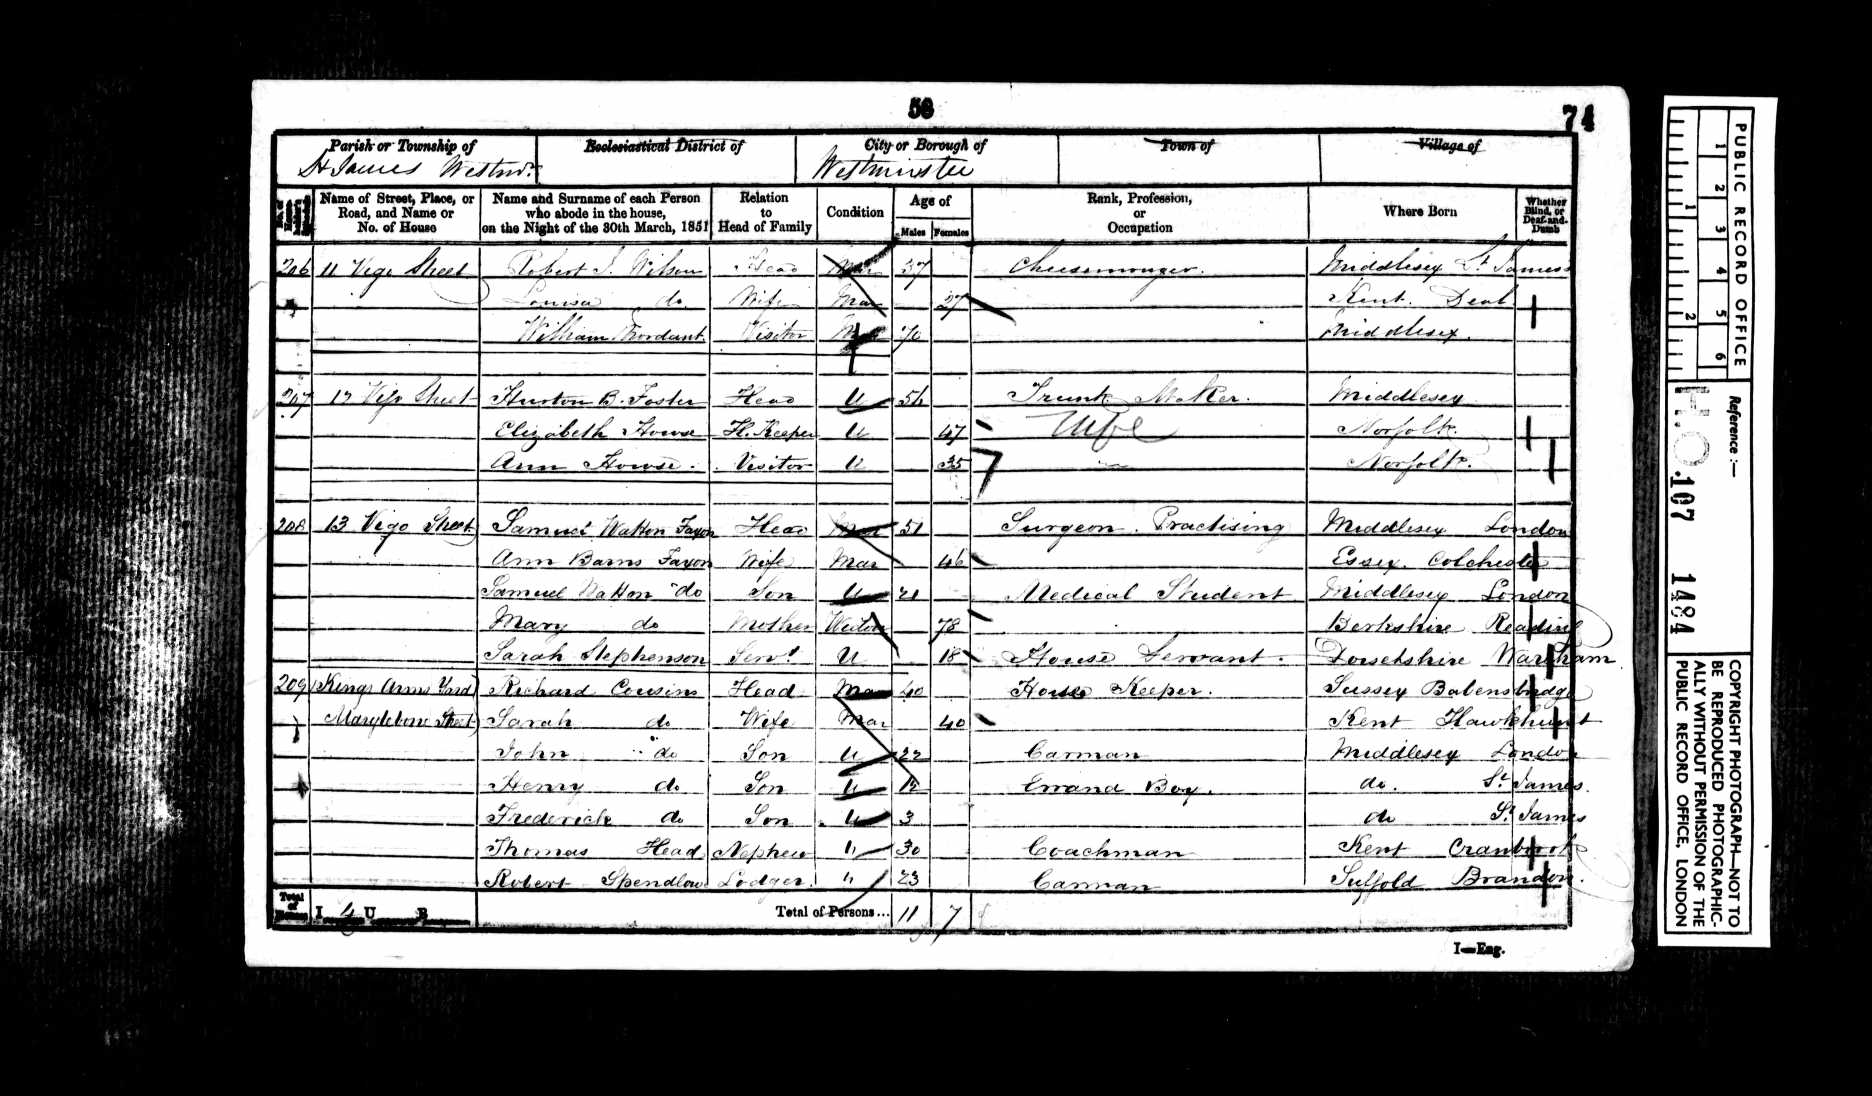 56
74
Parish or Township of
Ecclesiastical District of
City or Borough of
Town of
Village of
St James Westmr.
Westminster
Name of Street, Place, or Road, and Name or No. of House
Name and Surname of each Person who abode in the house, on the Night of the 30th March, 1851
Relation to Head of Family
Condition
Age of
Males
Females
Rank, Profession, or Occupation
Where Born
Whether Blind, or Deaf-and-Dumb
206 11 Vigo Street Robert J. Wilson Head Mar 37 Cheesemonger. Middlesex St James
Louisa do Wife Mar 27 Kent. Deal
William Mordant Visitor 76 Middlesex.
207 12 Vigo Street B. Foster Head U 56 Trunk Maker. Middlesex
Elizabeth Howse H. Keeper U 47 Norfolk.
Ann Howse. Visitor U 35 Norfolk.
208 13 Vigo Street Samuel Watton Head Mar 51 Surgeon. Practising Middlesex London
Ann Barns Wife Mar 46 Essex. Colchester
Samuel Watton do Son U 21 Medical Student Middlesex London
Mary do Mother Widow 78 Berkshire Reading
Sarah Stephenson Servt. U 18 House Servant. Dorsetshire Wareham
209 Kings Arms Yard Richard Cousins Head Mar 40 Horse Keeper. Sussex
Marylebone Street Sarah do Wife Mar 40 Kent Hawkhurst
John do Son U 22 Carman Middlesex London
Henry do Son U 12 Errand Boy. do. St. James.
Frederick do Son U 3 do St James
Thomas Head Nephew U 30 Coachman Kent Cranbrook
Robert Spendlow Lodger. U 23 Carman Suffold Brandon.
Total of Houses I 4 U B Total of Persons... 11 7
I—Eng.
PUBLIC RECORD OFFICE
1 2 3 4 5 6
1 2
Reference:—
H.O. 107 1484
COPYRIGHT PHOTOGRAPH—NOT TO
BE REPRODUCED PHOTOGRAPHIC-
ALLY WITHOUT PERMISSION OF THE
PUBLIC RECORD OFFICE, LONDON